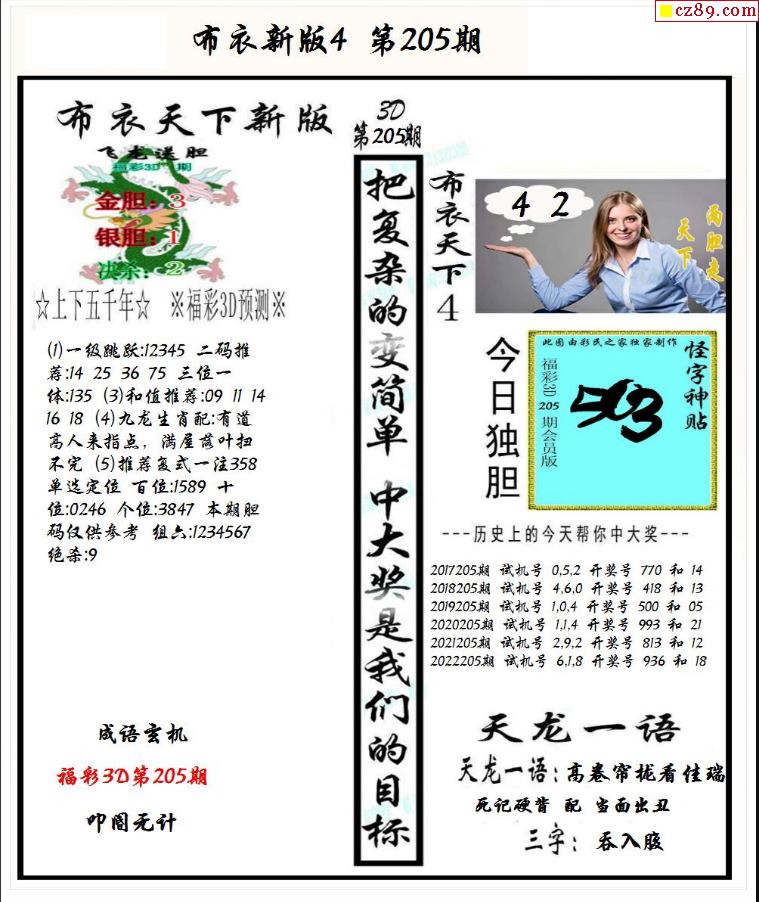 cz89.com
布衣新版4 第205期
布衣天下新版
3D
第205期
飞龙送胆
福彩3D 期
金胆: 3
银胆: 1
决杀: 2
☆上下五千年☆ ※福彩3D预测※
(1)一级跳跃:12345 二码推
荐:14 25 36 75 三位一
体:135 (3)和值推荐:09 11 14
16 18 (4)九龙生肖配:有道
高人来指点，满屋落叶扫
不完 (5)推荐复式一注358
单选定位 百位:1589 十
位:0246 个位:3847 本期胆
码仅供参考 组六:1234567
绝杀:9
成语玄机
福彩3D第205期
叩阍无计
把复杂的变简单 中大奖是我们的目标
布衣天下4
4 2
两胆走
天下
今日独胆
此图由彩民之家独家制作
怪字神贴
福彩3D 205 期会员版
503
---历史上的今天帮你中大奖---
2017205期 试机号 0,5,2 开奖号 770 和 14
2018205期 试机号 4,6,0 开奖号 418 和 13
2019205期 试机号 1,0,4 开奖号 500 和 05
2020205期 试机号 1,1,4 开奖号 993 和 21
2021205期 试机号 2,9,2 开奖号 813 和 12
2022205期 试机号 6,1,8 开奖号 936 和 18
天龙一语
天龙一语:高卷帘拢看佳瑞
死记硬背 配 当面出丑
三字: 吞入腹